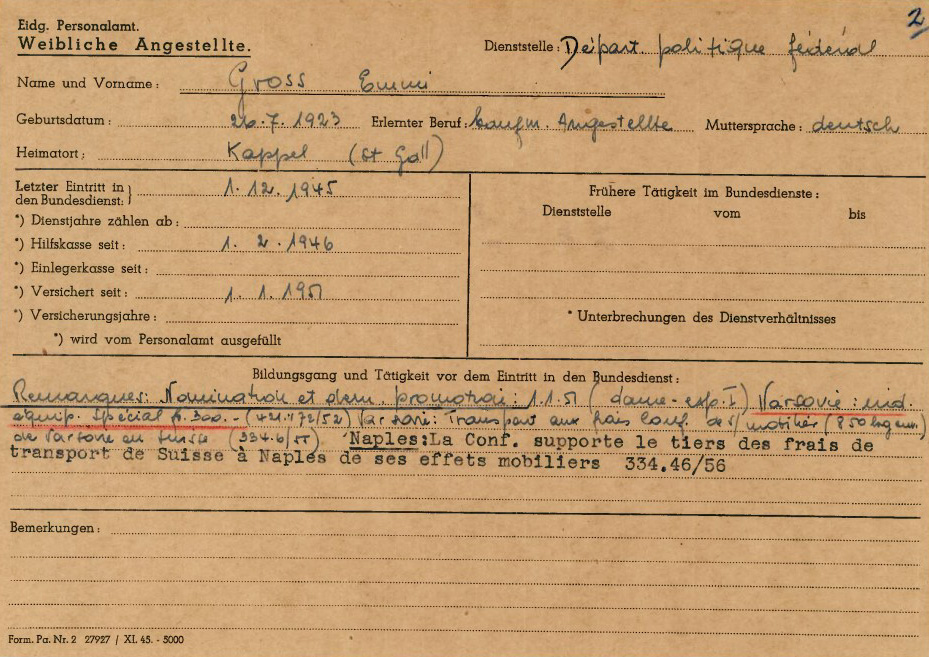 2
Eidg. Personalamt.
Weibliche Angestellte.
Dienststelle: Départ. politique fédéral
Name und Vorname: Gross Emmi
Geburtsdatum: 26.7.1923 Erlernter Beruf: kaufm. Angestellte Muttersprache: deutsch
Heimatort: Kappel (St Gall)
Letzter Eintritt in den Bundesdienst: } 1.12.1945
*) Dienstjahre zählen ab:
*) Hilfskasse seit: 1. 2. 1946
*) Einlegerkasse seit:
*) Versichert seit: 1. 1. 1951
*) Versicherungsjahre:
*) wird vom Personalamt ausgefüllt
Frühere Tätigkeit im Bundesdienste:
Dienststelle vom bis
* Unterbrechungen des Dienstverhältnisses
Bildungsgang und Tätigkeit vor dem Eintritt in den Bundesdienst:
Remarques: Nomination et dern. promotion: 1.1.51 (dame-exp. I) Varsovie: ind.
équip. spécial fr. 300.- (421.172/52) Varsovie: Transport aux frais Conf. des mobilier (850 kg env.)
de Varsovie en Suisse (334.6/55) Naples: La Conf. supporte le tiers des frais de
transport de Suisse à Naples de ses effets mobiliers 334.46/56
Bemerkungen:
Form. Pa. Nr. 2 27927 / XI. 45. - 5000